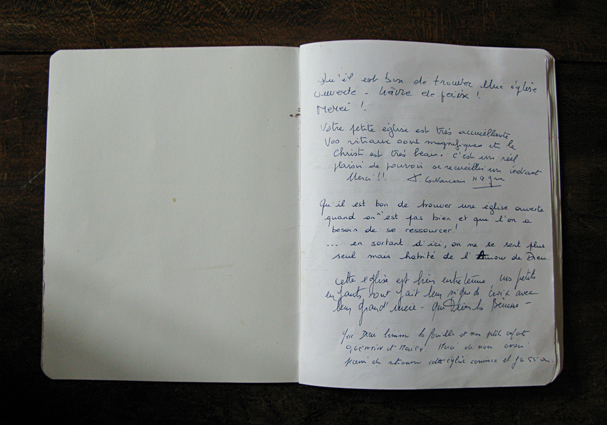 Qu'il est bon de trouver une église
ouverte - havre de paix !
Merci !
Votre petite église est très accueillante
Vos vitraux sont magnifiques et le
Christ est très beau, c'est un réel
plaisir de pouvoir se recueillir un instant
Merci !!
Qu'il est bon de trouver une eglise ouverte
quand on n'est pas bien et que l'on a
besoin de se ressourcer !
... en sortant d'ici, on ne se sent plus
seul mais habité de l'Amour de Dieu
cette eglise est bien entretenue mes petits
enfants ont fait leur signe de croix avec
leur grand mere - que Dieu les
la famille et mon petit enfant
QUENTIN et
cette église comme